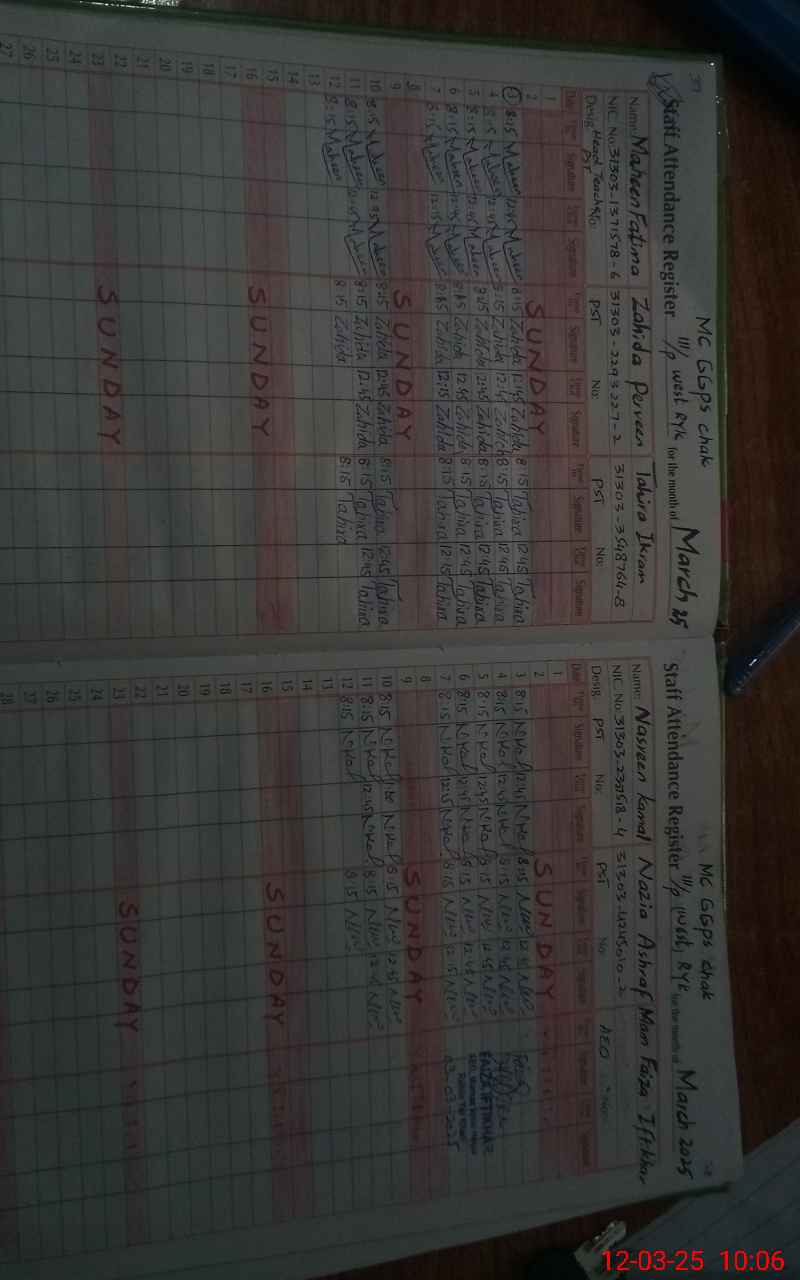 37
MC GGPS chak
Staff Attendance Register 111/P west RYK for the month of March 25
Name: Maheen Fatima Zahida Perveen Tahira Ikram
NIC. No: 31303-1371578-6 31303-2293227-2 31303-3548764-8
Desig: Head Teacher No: PST No: PST No:
PST
Date Time Signature Time Signature Time Signature Time Signature Time Signature Time Signature
1
2 SUNDAY
3 8:15 Maheen 12:45 Maheen 8:15 Zahida 12:45 Zahida 8:15 Tahira 12:45 Tahira
4 8:15 Maheen 12:45 Maheen 8:15 Zahida 12:45 Zahida 8:15 Tahira 12:45 Tahira
5 8:15 Maheen 12:45 Maheen 8:15 Zahida 12:45 Zahida 8:15 Tahira 12:45 Tahira
6 8:15 Maheen 12:45 Maheen 8:15 Zahida 12:45 Zahida 8:15 Tahira 12:45 Tahira
7 8:15 Maheen 12:15 Maheen 8:15 Zahida 12:15 Zahida 8:15 Tahira 12:15 Tahira
8
9 SUNDAY
10 8:15 Maheen 12:45 Maheen 8:15 Zahida 12:45 Zahida 8:15 Tahira 12:45 Tahira
11 8:15 Maheen 12:45 Maheen 8:15 Zahida 12:45 Zahida 8:15 Tahira 12:45 Tahira
12 8:15 Maheen 8:15 Zahida 8:15 Tahira
13
14
15
16 SUNDAY
17
18
19
20
21
22
23 SUNDAY
24
25
26
27
MC GGPS chak
Staff Attendance Register 111/P west, RYK for the month of March 2025
Name: Nasreen Kamal Nazia Ashraf Mam Faiza Iftikhar
NIC. No: 31303-4245010-2
Desig. PST No: PST No: AEO No:
Date Time Signature Time Signature Time Signature Time Signature Signature
1
2 SUNDAY
3 8:15 N.Kal 12:45 N.Kal 8:15 12:45
4 8:15 N.Kal 12:45 N.Kal 8:15 12:45
5 8:15 N.Kal 12:45 N.Kal 8:15 12:45 FAIZA IFTIKHAR
6 8:15 N.Kal 12:45 N.Kal 8:15 12:45
7 8:15 N.Kal 12:15 N.Kal 8:15 12:15 03-03-2025
8
9 SUNDAY
10 8:15 N.Kal N.Kal 8:15 12:45
11 8:15 N.Kal 12:45 N.Kal 8:15 12:45
12 8:15 N.Kal 8:15
13
14
15
16 SUNDAY
17
18
19
20
21
22
23 SUNDAY
24
25
26
27
28
12-03-25 10:06